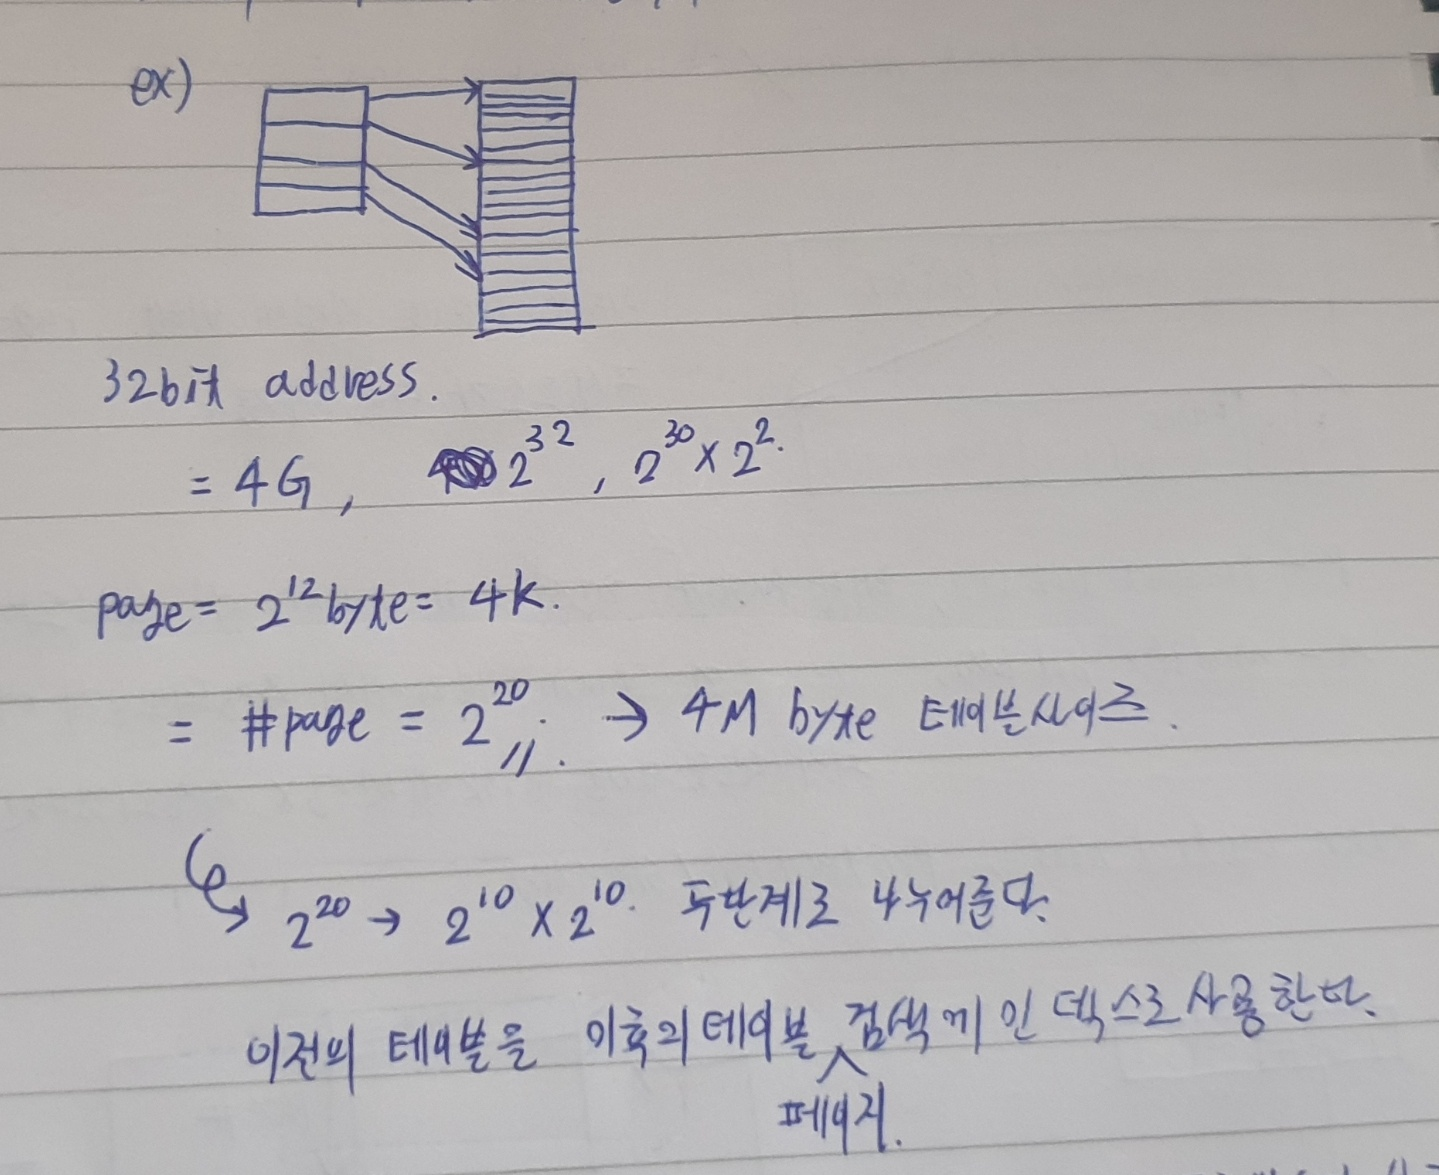 ex)
32bit address.
= 4G, 2^32, 2^30 x 2^2.
page = 2^12 byte = 4k.
= #page = 2^20 → 4M byte 테이블사이즈.
2^20 → 2^10 x 2^10. 두단계로 나누어준다.
이전의 테이블을 이후의 테이블 검색 인덱스로 사용한다.
페이지.